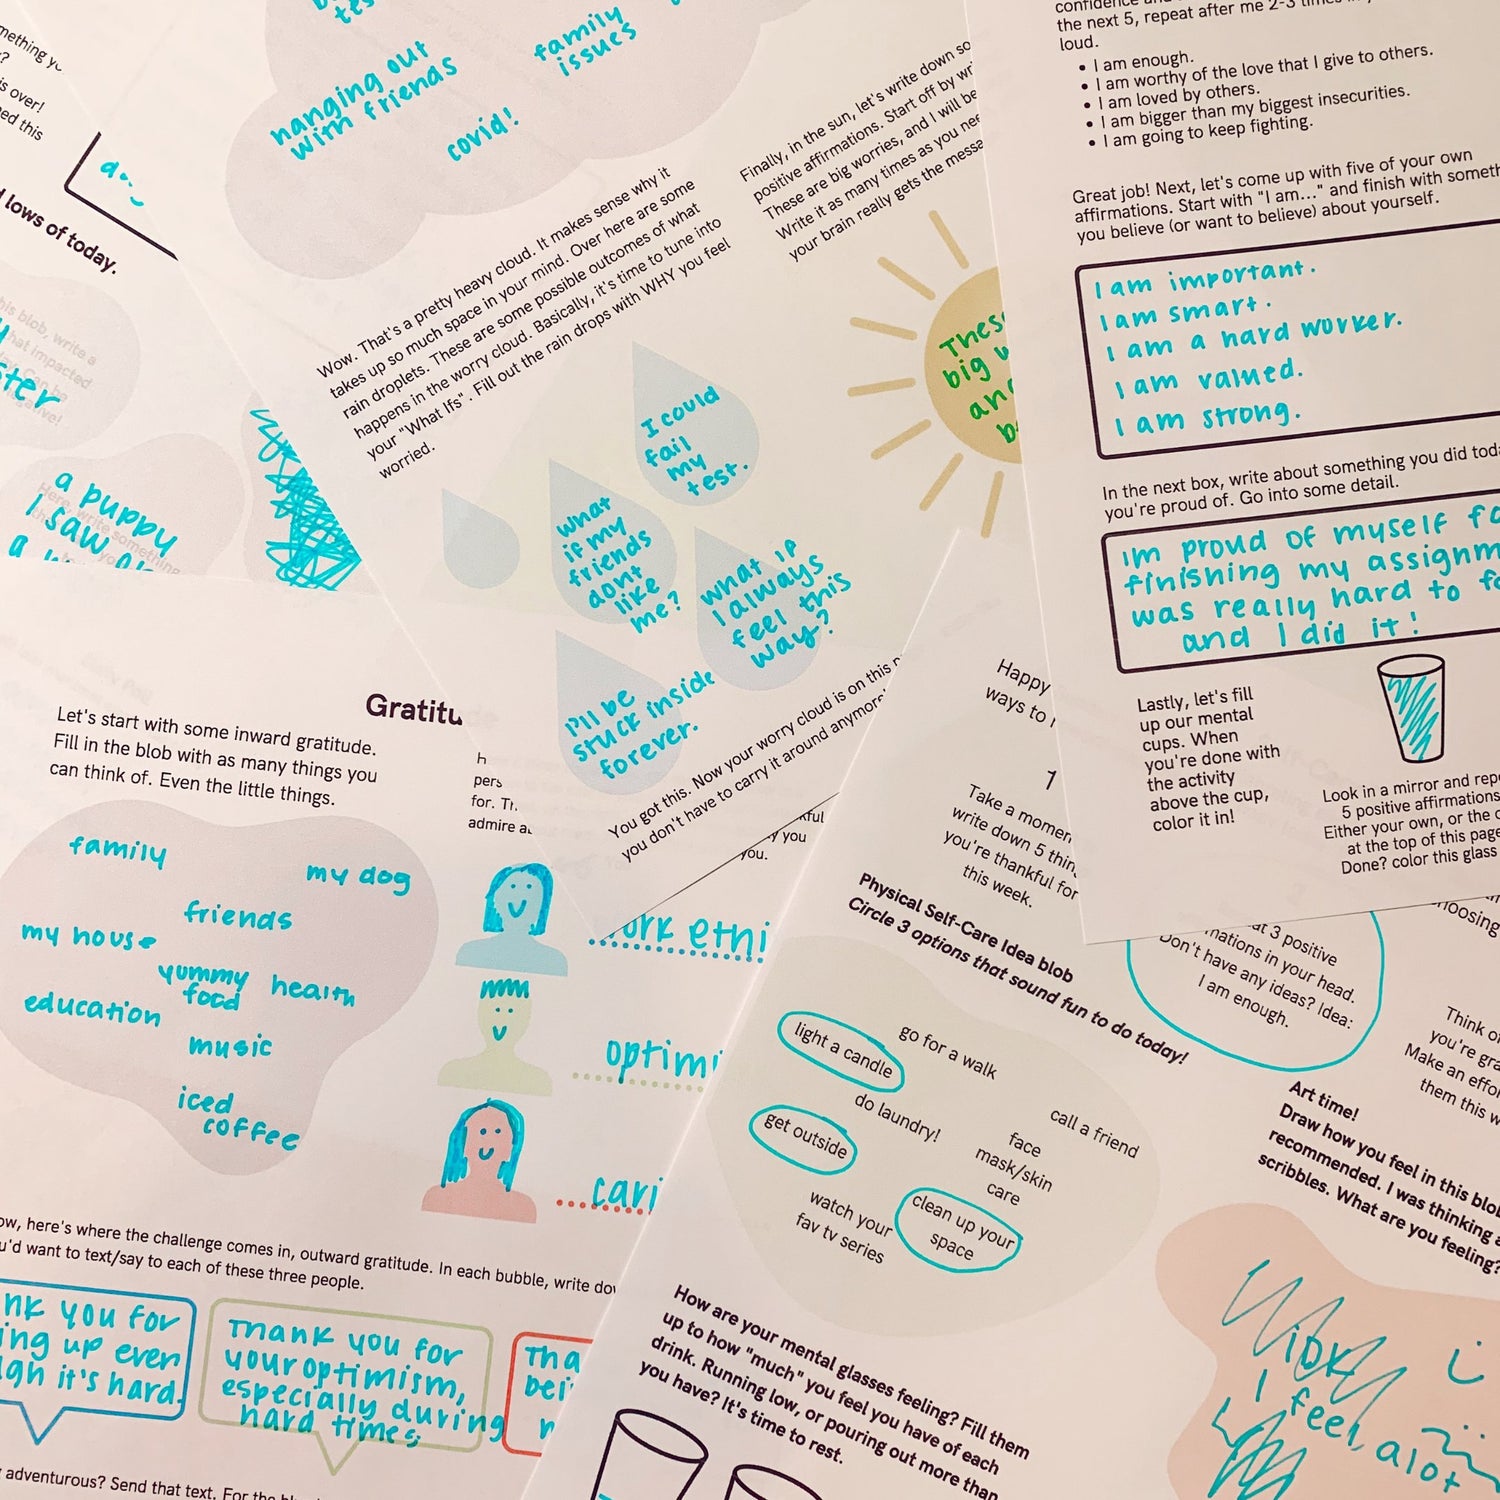 hanging out
with friends
family
issues
covid!
is over!
lows of today.
a puppy
I saw
Wow. That's a pretty heavy cloud. It makes sense why it
takes up so much space in your mind. Over here are some
rain droplets. These are some possible outcomes of what
happens in the worry cloud. Basically, it's time to tune into
your "What Ifs". Fill out the rain drops with WHY you feel
worried.
I could
fail
my
test.
what
if my
friends
dont
like
me?
what if
I always
feel this
way?
I'll be
stuck inside
forever.
You got this. Now your worry cloud is on this
you don't have to carry it around anymore
Finally, in the sun, let's write down
positive affirmations. Start off by
These are big worries, and I will be
Write it as many times as you
your brain really gets the
These
big
the next 5, repeat after me 2-3 times
loud.
• I am enough.
• I am worthy of the love that I give to others.
• I am loved by others.
• I am bigger than my biggest insecurities.
• I am going to keep fighting.
Great job! Next, let's come up with five of your own
affirmations. Start with "I am..." and finish with
you believe (or want to believe) about yourself.
I am important.
I am smart.
I am a hard worker.
I am valued.
I am strong.
In the next box, write about something you did
you're proud of. Go into some detail.
Im proud of myself
finishing my
was really hard to
and I did it!
Lastly, let's fill
up our mental
cups. When
you're done with
the activity
above the cup,
color it in!
Look in a mirror and
5 positive affirmations
Either your own, or the
at the top of this page
Done? color this glass
Let's start with some inward gratitude.
Fill in the blob with as many things you
can think of. Even the little things.
family
my dog
friends
my house
yummy
food
health
education
music
iced
coffee
for.
admire
you
you.
here's where the challenge comes in, outward gratitude. In each bubble, write
want to text/say to each of these three people.
you for
up even
it's hard.
Thank you for
your optimism,
especially during
hard times
adventurous? Send that text. For the
Happy
ways to
1
Take a
write down 5
you're thankful for
this week.
Physical Self-Care Idea blob
Circle 3 options that sound fun to do today!
light a candle
go for a walk
do laundry!
call a friend
get outside
face
mask/skin
care
watch your
fav tv series
clean up your
space
How are your mental glasses feeling? Fill them
up to how "much" you feel you have of each
drink. Running low, or pouring out more than
you have? It's time to rest.
3 positive
in your head.
Don't have any ideas? Idea:
I am enough.
Think
you're
Make an
them this
Art time!
Draw how you feel in this
recommended. I was thinking
scribbles. What are you feeling?
IDK
I feel alot